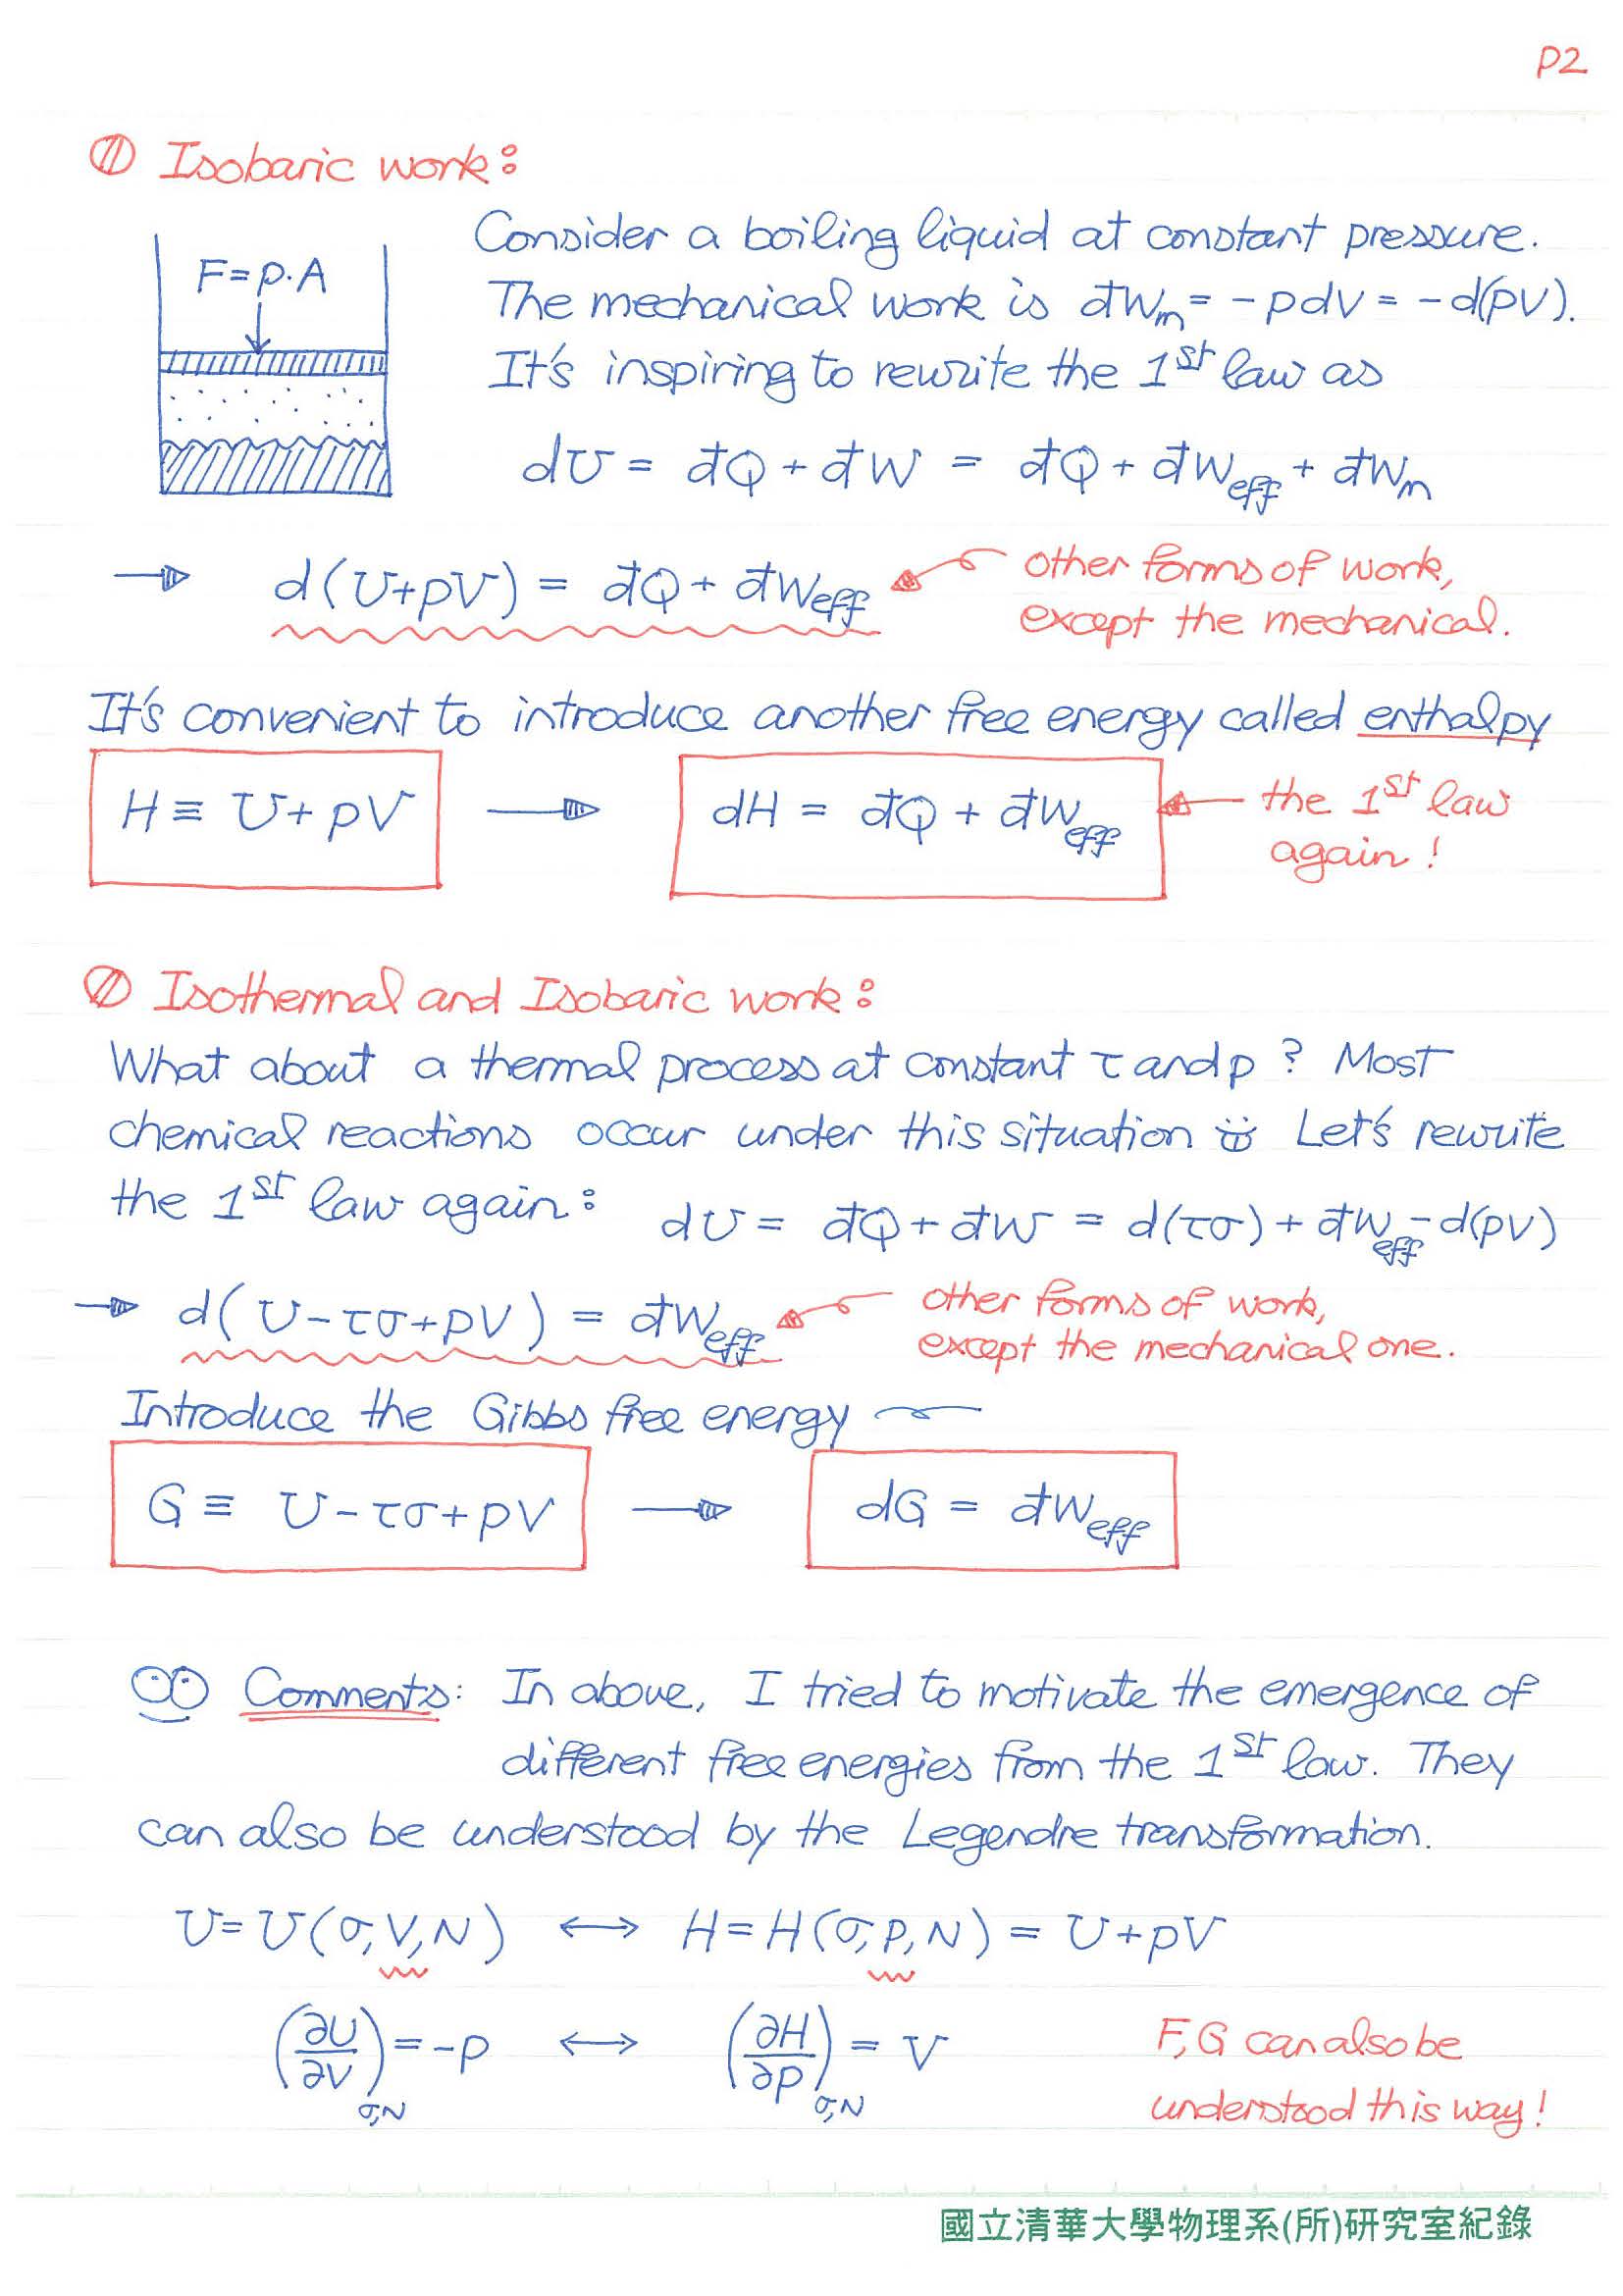 P2
Isobaric work:
F=p·A
Consider a boiling liquid at constant pressure.
The mechanical work is đWₘ = -pdV = -d(pV).
It's inspiring to rewrite the 1ˢᵗ law as
dU = đQ + đW = đQ + đW_eff + đWₘ
→ d(U+pV) = đQ + đW_eff
other forms of work,
except the mechanical.
It's convenient to introduce another free energy called enthalpy
H ≡ U + pV → dH = đQ + đW_eff ← the 1ˢᵗ law
again!
Isothermal and Isobaric work:
What about a thermal process at constant τ and p? Most
chemical reactions occur under this situation ☺ Let's rewrite
the 1ˢᵗ law again: dU = đQ + đW = d(τσ) + đW_eff - d(pV)
→ d(U-τσ+pV) = đW_eff
other forms of work,
except the mechanical one.
Introduce the Gibbs free energy
G ≡ U-τσ+pV → dG = đW_eff
Comments: In above, I tried to motivate the emergence of
different free energies from the 1ˢᵗ law. They
can also be understood by the Legendre transformation.
U=U(σ,V,N) ↔ H=H(σ,p,N) = U+pV
(∂U/∂V)_σ,N = -p ↔ (∂H/∂p)_σ,N = V
F,G can also be
understood this way!
國立清華大學物理系(所)研究室紀錄